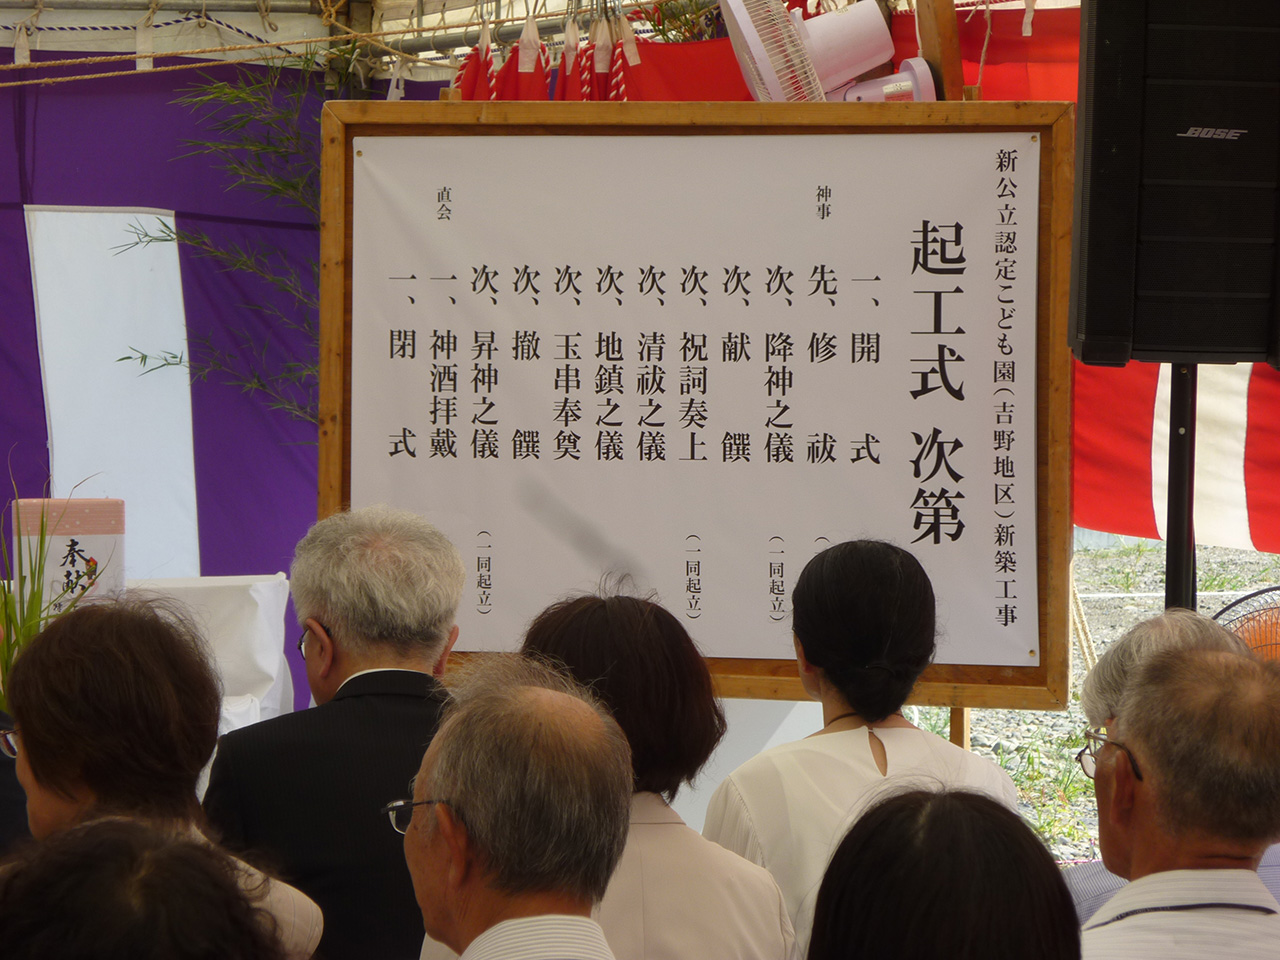 新公立認定こども園（吉野地区）新築工事
起工式 次第
一、開 式
神事
先、修 祓 （
次、降神之儀 （一同起立）
次、献 饌
次、祝詞奏上 （一同起立）
次、清祓之儀
次、地鎮之儀
次、玉串奉奠
次、撤 饌
次、昇神之儀 （一同起立）
直会
一、神酒拝戴
一、閉 式
BOSE
奉献